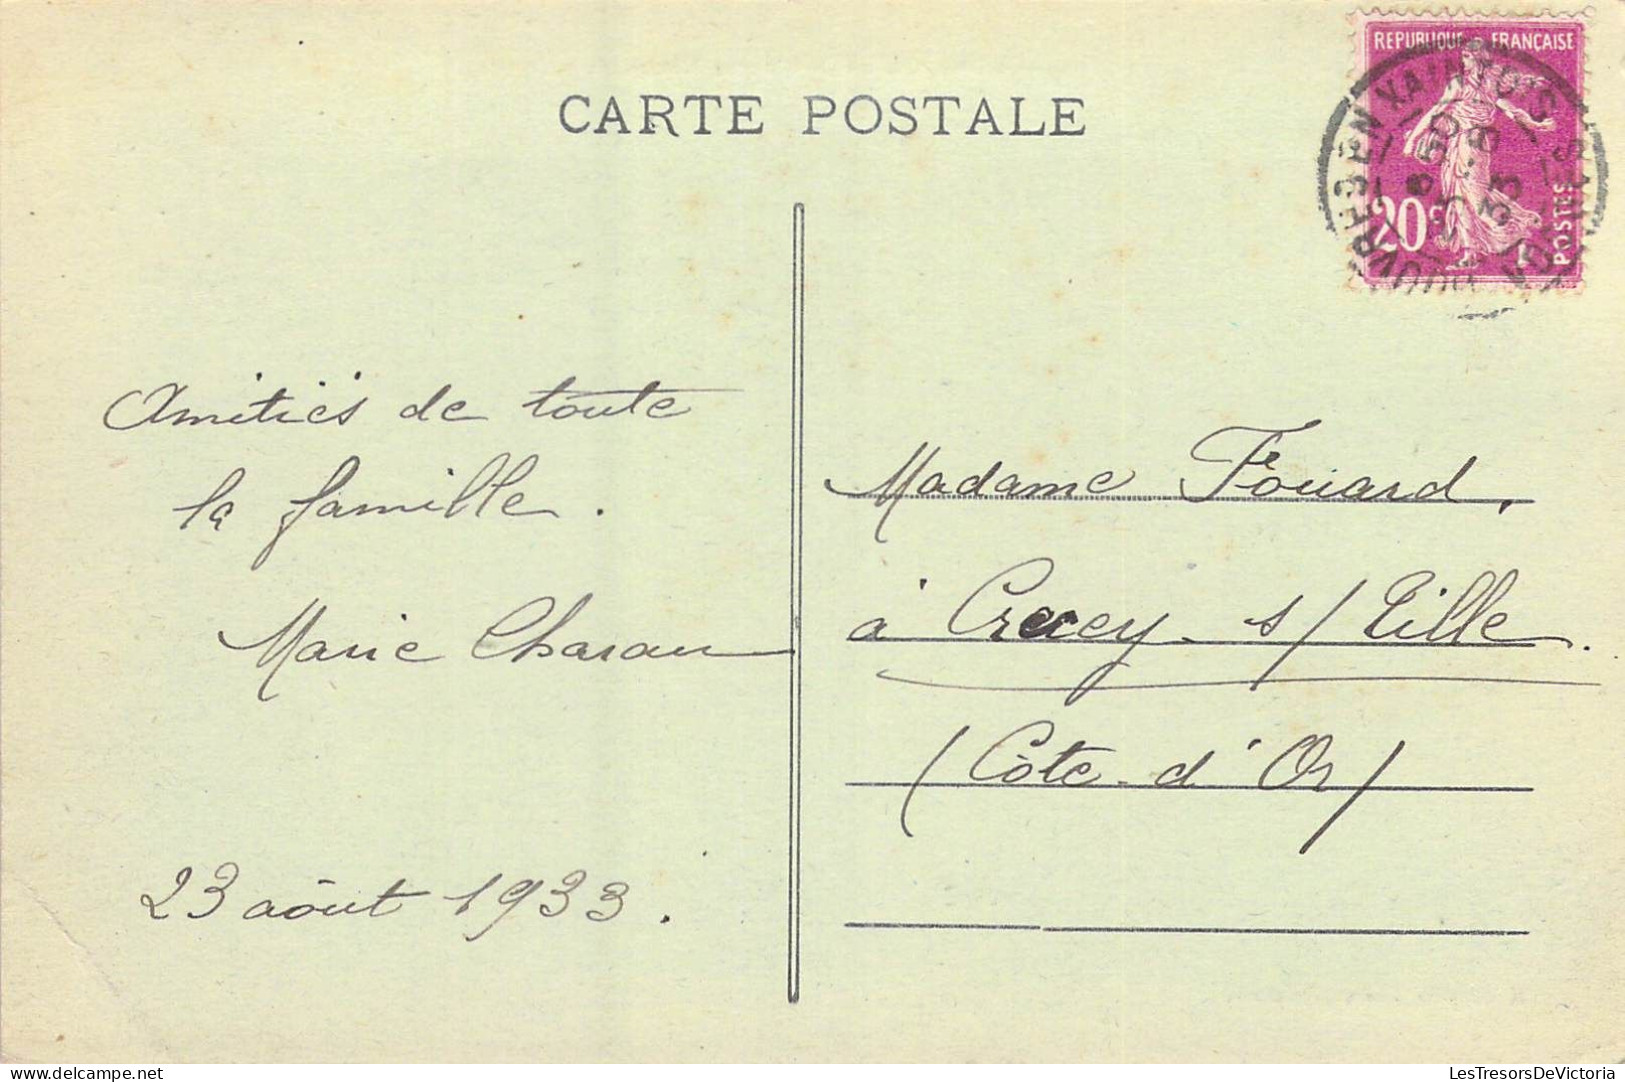 CARTE POSTALE
REPUBLIQUE FRANÇAISE
20c
POSTES
DOUVRE-S-EN XAINTOIS
8 50
23 -8
33
VOSGES
Amitiés de toute
la famille.
Marie Charau
23 août 1933.
Madame Fouard,
à Crecey s/ Tille.
(Côte-d'Or)
LesTresorsDeVictoria